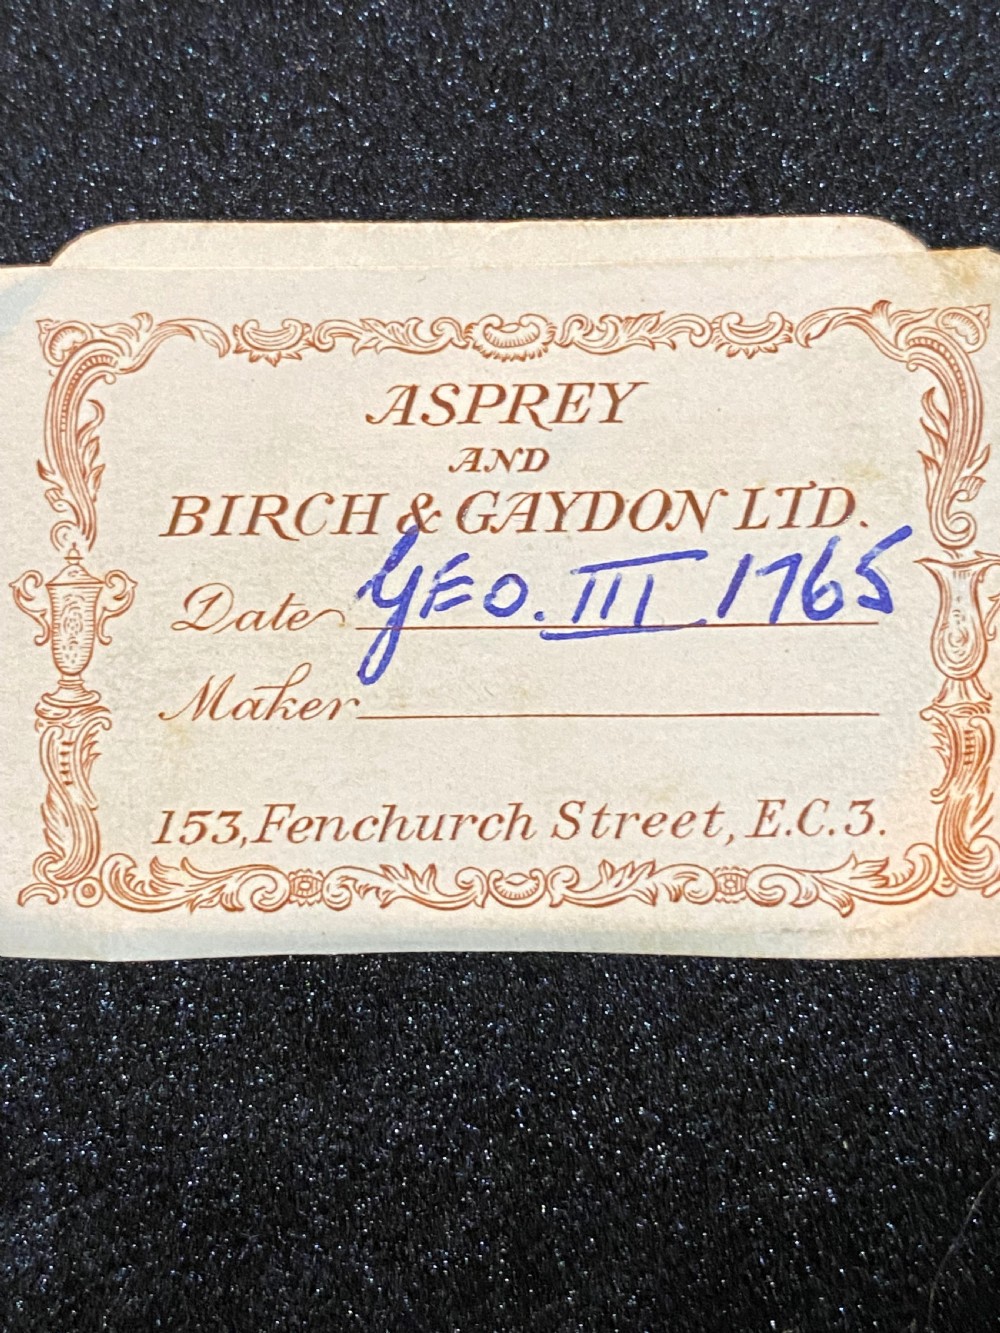 ASPREY
AND
BIRCH & GAYDON LTD.
Date GEO. III 1765
Maker
153, Fenchurch Street, E.C.3.